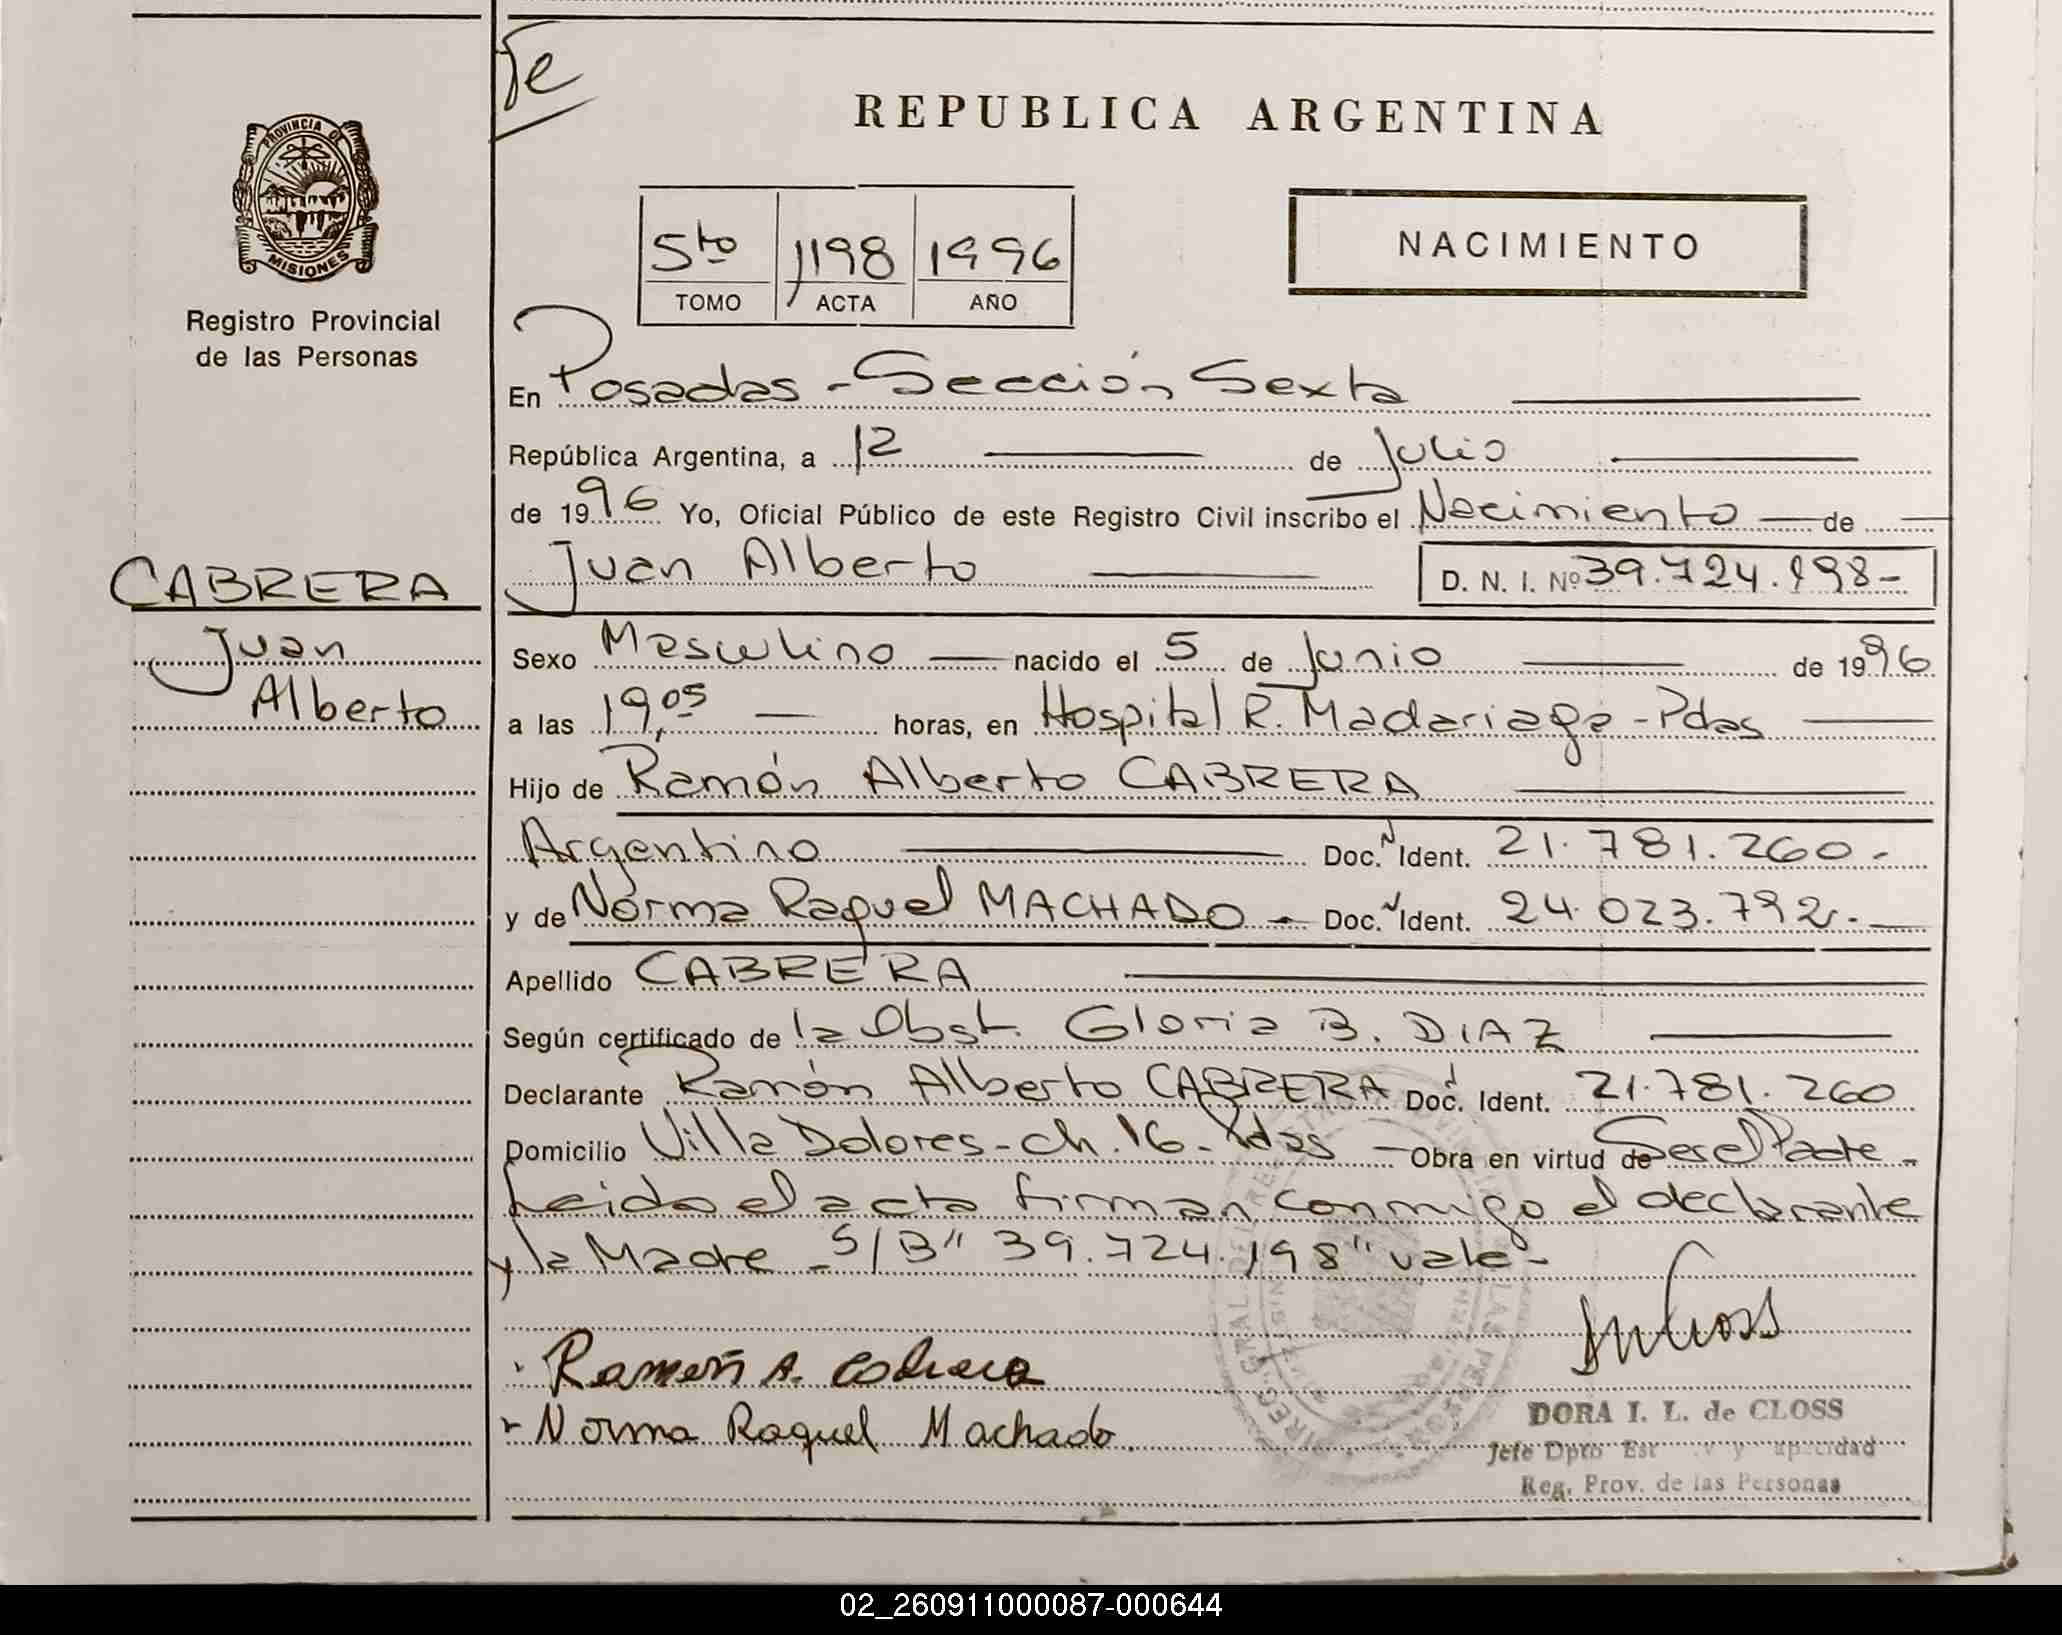 Te
REPUBLICA ARGENTINA
PROVINCIA DE
MISIONES
Registro Provincial
de las Personas
5to 1198 1996
TOMO ACTA AÑO
NACIMIENTO
En Posadas - Sección Sexta
República Argentina, a 12 de Julio
de 1996 Yo, Oficial Público de este Registro Civil inscribo el Nacimiento de
Juan Alberto D. N. I. Nº 39.724.198-
CABRERA
Juan
Alberto
Sexo Masculino nacido el 5 de Junio de 1996
a las 19,05 horas, en Hospital R. Madariaga - Pdas
Hijo de Ramón Alberto CABRERA
Argentino Doc. Ident. 21.781.260.-
y de Norma Raquel MACHADO - Doc. Ident. 24.023.792.-
Apellido CABRERA
Según certificado de la Obst. Gloria B. DIAZ
Declarante Ramón Alberto CABRERA Doc. Ident. 21.781.260
Domicilio Villa Dolores - ch. 16 - Pdas - Obra en virtud de Ser el Padre -
Leida el acta firman conmigo el declarante
y la Madre - S/B" 39.724.198" vale-
Ramón A. Cabrera
Norma Raquel Machado.
DORA I. L. de CLOSS
Jefe Dpto Est y
Reg. Prov. de las Personas
02_260911000087-000644